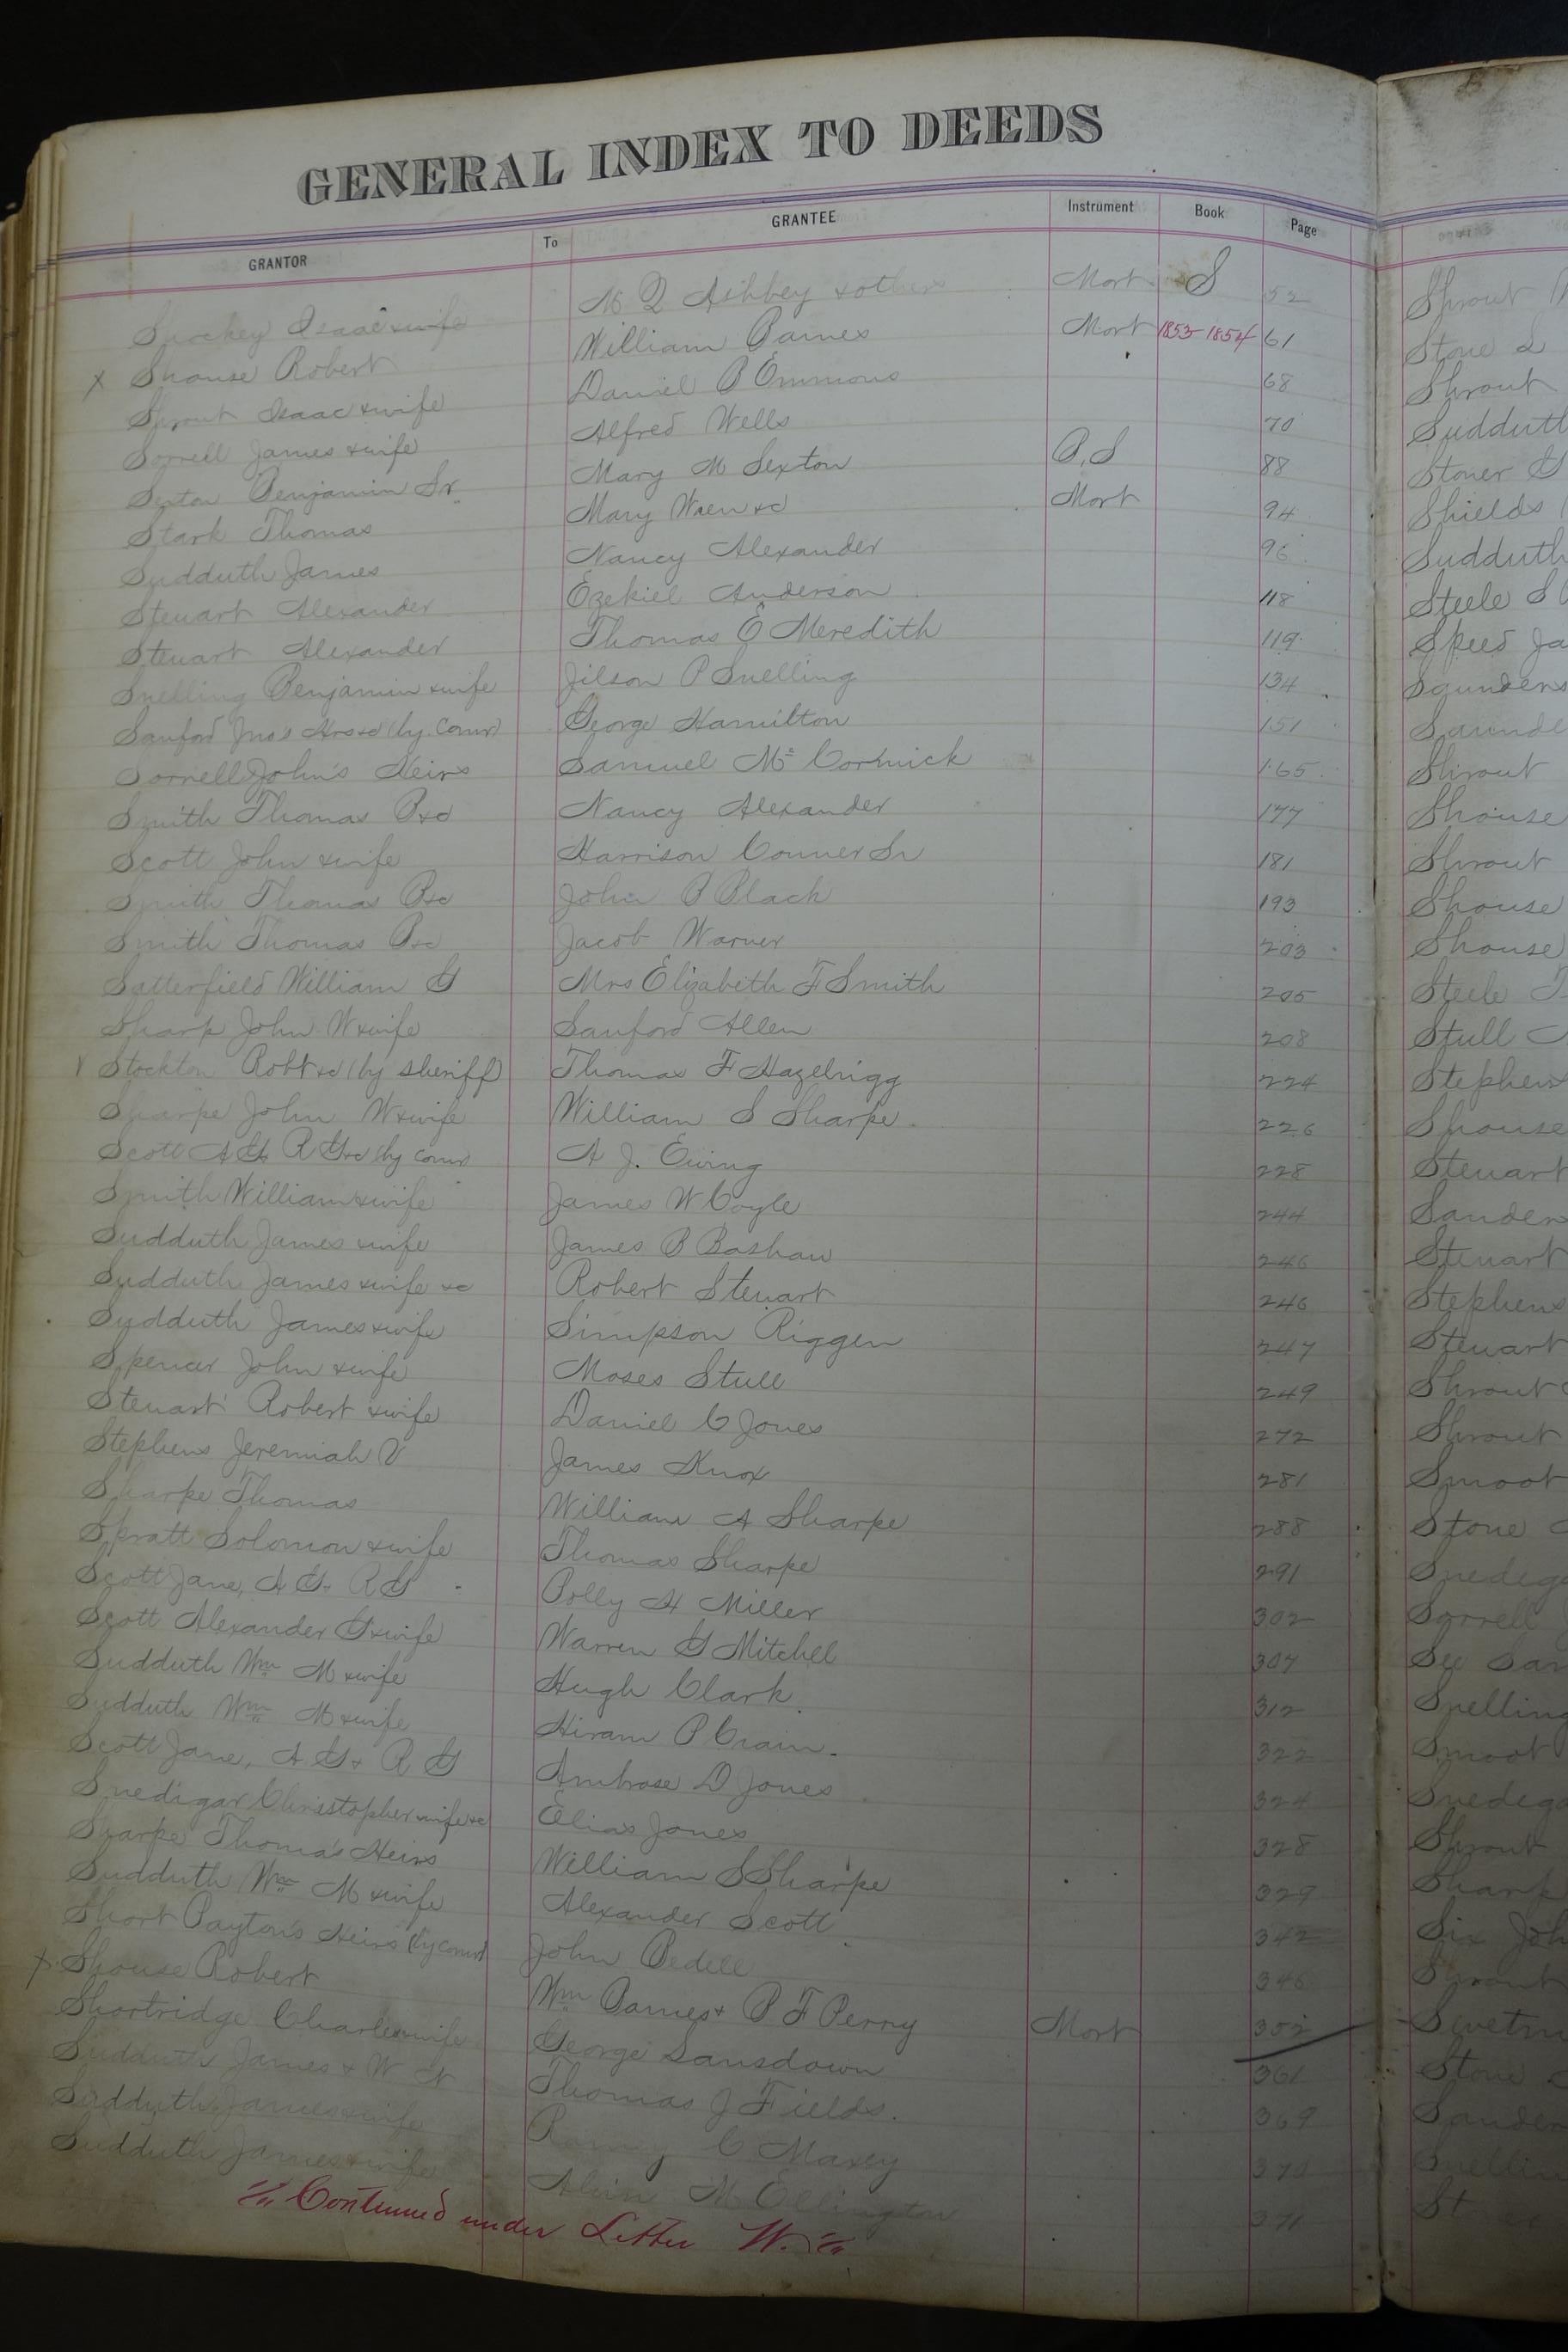 GENERAL INDEX TO DEEDS
GRANTOR To GRANTEE Instrument Book Page
Shockey Isaac & wife M Q Ashbey & others Mort S 52
x Shouse Robert William Barnes Mort 1853-1854 61
Shrout Isaac & wife Daniel B Emmons 68
Sorrell James & wife Alfred Wells 70
Sexton Benjamin Sr. Mary M Sexton B.S 88
Stark Thomas Mary Wren &c Mort 94
Sudduth James Nancy Alexander 96
Steuart Alexander Ezekiel Anderson 118
Steuart Alexander Thomas E Meredith 119
Snelling Benjamin & wife Jilson P Snelling 134
Sanford Jno's Hrs &c (by Comr) George Hamilton 151
Sorrell John's Heirs Samuel Mc Cormick 165
Smith Thomas B &c Nancy Alexander 177
Scott John & wife Harrison Conner Sr 181
Smith Thomas B &c John B Black 193
Smith Thomas B &c Jacob Warner 203
Satterfield William G Mrs Elizabeth F Smith 205
Sharp John W & wife Sanford Allen 208
x Stockton Robt &c (by sheriff) Thomas F Hazelrigg 224
Sharpe John W & wife William S Sharpe 226
Scott A G & R G &c (by comr) A J. Ewing 228
Smith William & wife James W Coyle 244
Sudduth James & wife James B Bashaw 246
Sudduth James & wife &c Robert Steuart 246
Sudduth James & wife Simpson Riggen 247
Spencer John & wife Moses Stull 249
Steuart Robert & wife Daniel C Jones 272
Stephens Jeremiah V James Knox 281
Sharpe Thomas William A Sharpe 288
Spratt Solomon & wife Thomas Sharpe 291
Scott Jane, A G & R G Polly H Miller 302
Scott Alexander G & wife Warren G Mitchel 307
Sudduth Wm M & wife Hugh Clark 312
Sudduth Wm M & wife Hiram P Crain 322
Scott Jane, A G & R G Ambrose D Jones 324
Snedigar Christopher & wife &c Elias Jones 328
Sharpe Thomas' Heirs William S Sharpe 329
Sudduth Wm M & wife Alexander Scott 342
Short Payton's Heirs (by comr) John Bedell 346
x Shouse Robert Wm Barnes & B F Perry Mort 352
Shortridge Charles & wife George Lansdown 361
Sudduth James & W H Thomas J Fields. 369
Sudduth James & wife C Maxey 370
Sudduth James & wife M Ellington 371
Continued under Letter W.
Shrout
Stone
Shrout
Sudduth
Stoner
Shields
Sudduth
Steele S
Speed Ja
Saunders
Saunde
Shrout
Shouse
Shrout
Shouse
Shouse
Steele
Stull
Stephens
Shouse
Steuart
Sanders
Steuart
Stephens
Steuart
Shrout
Shrout
Smoot
Stone
Snediga
Sorrell
See San
Snelling
Smoot
Snediga
Shrout
Sharp
Six Joh
Shrout
Stone
Sander
Snellin
St